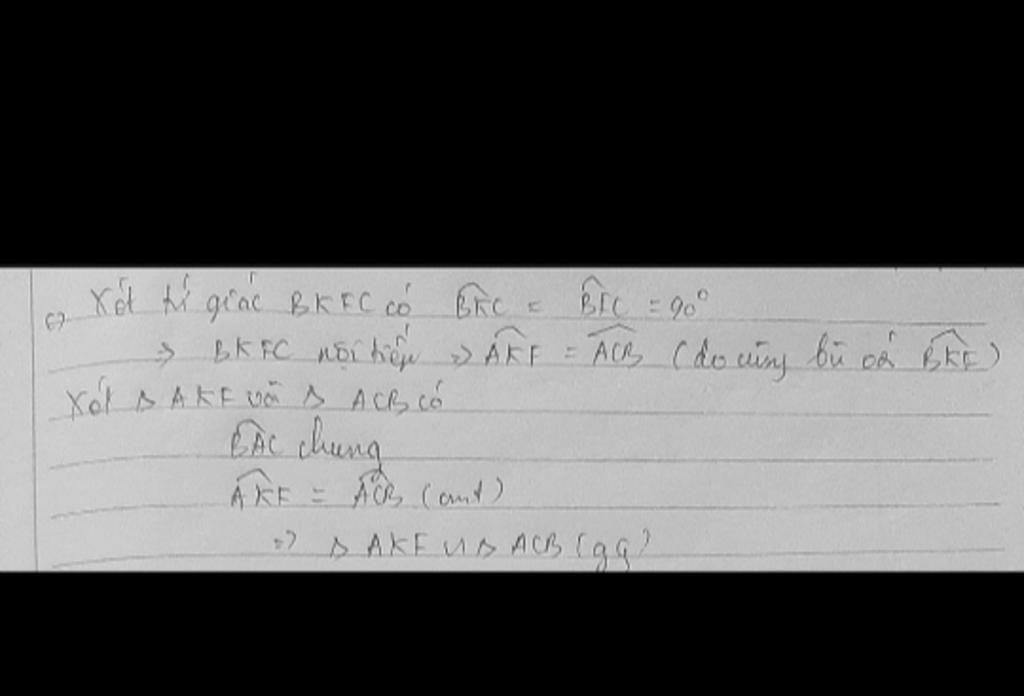 c) Xét tứ giác BKFC có BKC = BFC = 90°
=> BKFC nội tiếp => AKF = ACB (do cùng bù với BKF)
Xét Δ AKF và Δ ACB có
BAC chung
AKF = ACB (cmt)
=> Δ AKF ∽ Δ ACB (gg)